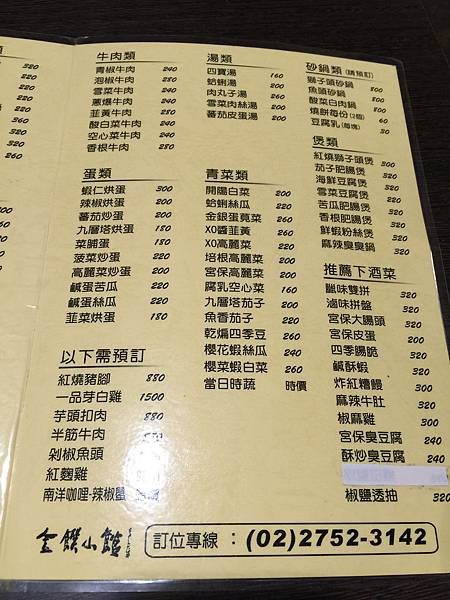 類
320
220
220
220
360
320
260
牛肉類
青椒牛肉 240
泡椒牛肉 280
雪菜牛肉 240
蔥爆牛肉 240
韭黃牛肉 240
酸白菜牛肉 240
空心菜牛肉 240
香根牛肉 280
蛋類
蝦仁烘蛋 300
辣椒烘蛋 200
蕃茄炒蛋 200
九層塔烘蛋 180
菜脯蛋 180
菠菜炒蛋 220
高麗菜炒蛋 220
鹹蛋苦瓜 220
鹹蛋絲瓜 220
韭菜烘蛋 180
以下需預訂
紅燒豬腳 880
一品芽白雞 1500
芋頭扣肉 880
半筋牛肉
剁椒魚頭
紅麴雞
南洋咖哩·辣椒蟹
湯類
四寶湯 160
蛤蜊湯 200
肉丸子湯 260
雪菜肉絲湯 200
蕃茄皮蛋湯 200
青菜類
開陽白菜 200
蛤蜊絲瓜 220
金銀蛋莧菜 260
XO醬韮黃 260
XO高麗菜 220
培根高麗菜 260
宮保高麗菜 260
腐乳空心菜 160
九層塔茄子 220
魚香茄子 220
乾煸四季豆 260
櫻花蝦絲瓜 240
櫻菜蝦白菜 260
當日時蔬 時價
砂鍋類(請預訂)
獅子頭砂鍋 800
魚頭砂鍋 800
酸菜白肉鍋 800
燒餅每份(2個) 60
豆腐乳(每塊) 30
煲類
紅燒獅子頭煲 320
茄子肥腸煲 320
海鮮豆腐煲 320
雪菜豆腐煲 220
苦瓜肥腸煲 320
香根肥腸煲 320
鮮蝦粉絲煲 320
麻辣臭臭鍋 320
推薦下酒菜
臘味雙拼 320
滷味拼盤 320
宮保大腸頭 320
宮保皮蛋 200
四季腸旎 320
鹹酥蝦 320
炸紅糟鰻 300
麻辣牛肚 320
椒麻雞 300
宮保臭豆腐 240
酥炒臭豆腐 240
椒鹽透抽 320
金饌小館
訂位專線：(02)2752-3142